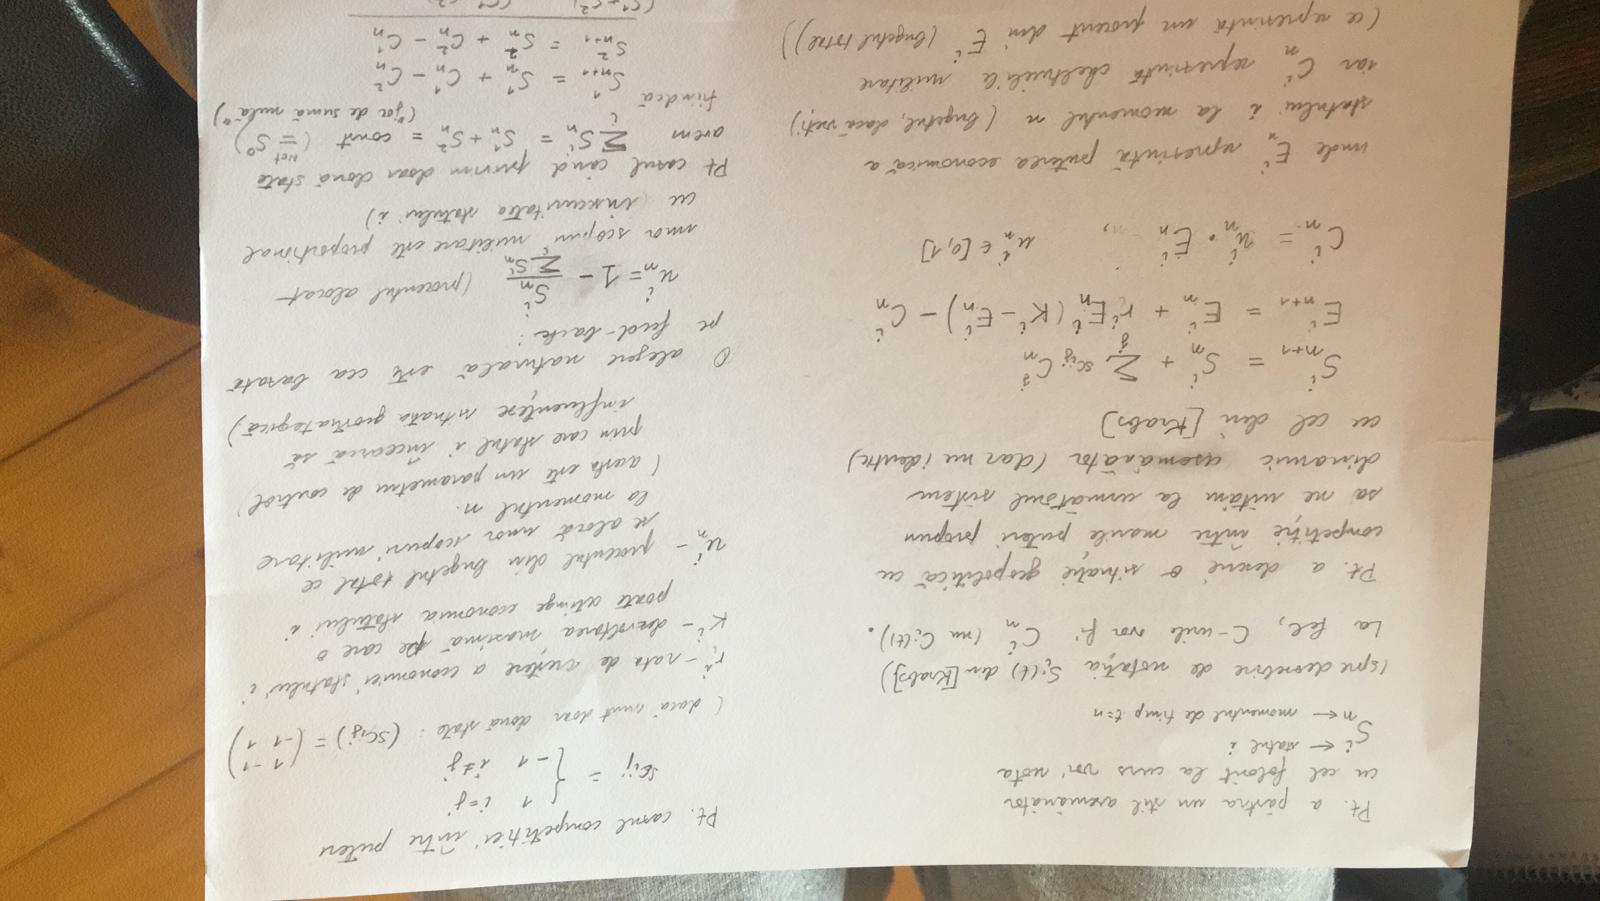 Pt. a păstra un stil asemănător
cu cel folosit la curs voi nota
S^i_n ← statul i
← momentul de timp t=n
(spre deosebire de notația S_i(t) din [Krabs])
La fel, C-urile vor fi C^i_n (nu C_i(t)).
Pt. a descrie o situație geopolitică cu
competiție între marile puteri propun
să ne uităm la următorul sistem
dinamic asemănător (dar nu identic)
cu cel din [Krabs]
S^i_{n+1} = S^i_n + Σ_j sc_{ij} C^j_n
E^i_{n+1} = E^i_n + r^i E^i_n (K^i - E^i_n) - C^i_n
C^i_n = u^i_n · E^i_n , u^i_n ∈ [0,1]
unde E^i_n reprezintă puterea economică a
statului i la momentul n (bugetul, dacă vreți)
iar C^i_n reprezintă cheltuielile militare
(ce reprezintă un procent din E^i (bugetul total))
Pt. cazul competiției între puteri
sc_{ij} = { 1 i=j
-1 i≠j
(dacă sunt doar două state: (sc_{ij}) = (1 -1
-1 1)
r^i - rata de creștere a economiei statului i
K^i - dezvoltarea maximă pe care o
poate atinge economia statului i
u^i_n - procentul din bugetul total ce
se alocă unor scopuri militare
la momentul n.
(acesta este un parametru de control
prin care statul i încearcă să
influențeze situația geostrategică)
O alegere naturală este cea bazată
pe feed-back:
u^i_n = 1 - S^i_n / Σ_i S^i_n (procentul alocat
unor scopuri militare este proporțional
cu insecuritatea statului i)
Pt cazul când privim doar două state
avem Σ_i S^i_n = S^1_n + S^2_n = const (Not = S^0)
("joc de sumă nulă")
fiindcă
S^1_{n+1} = S^1_n + C^1_n - C^2_n
S^2_{n+1} = S^2_n + C^2_n - C^1_n